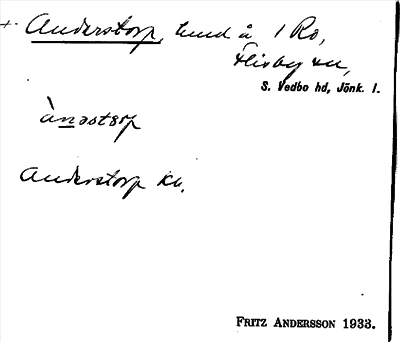 +. Anderstorp, lund å 1 Ro,
Flisby sn,
S. Vedbo hd, Jönk. l.
ànəstərp
Anderstorp
FRITZ ANDERSSON 1933.